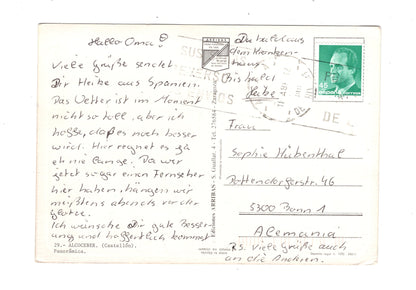 Hallo Oma!
Viele Grüße sendet
Dir Heike aus Spanien.
Das Wetter ist im Moment
nicht so toll, aber ich
hoffe, daß es noch besser
wird. Hier regnet es ja
eh nie lange. Da wir
jetzt sogar einen Fernseher
hier haben, hängen wir
meistens abends vor der
Glotze.
Ich wünsche Dir gute Besser-
ung und hoffentlich kommst
Du bald aus
dem Kranken-
haus.
Bis bald
Heike
29.- ALCOCEBER. (Castellón).
Panorámica.
Ediciones ARRIBAS
Zaragoza
Frau
Sophie Hübenthal
Rottendorferstr. 46
5300 Bonn 1
Alemania
P.S. Viele Grüße auch
an die Anderen.